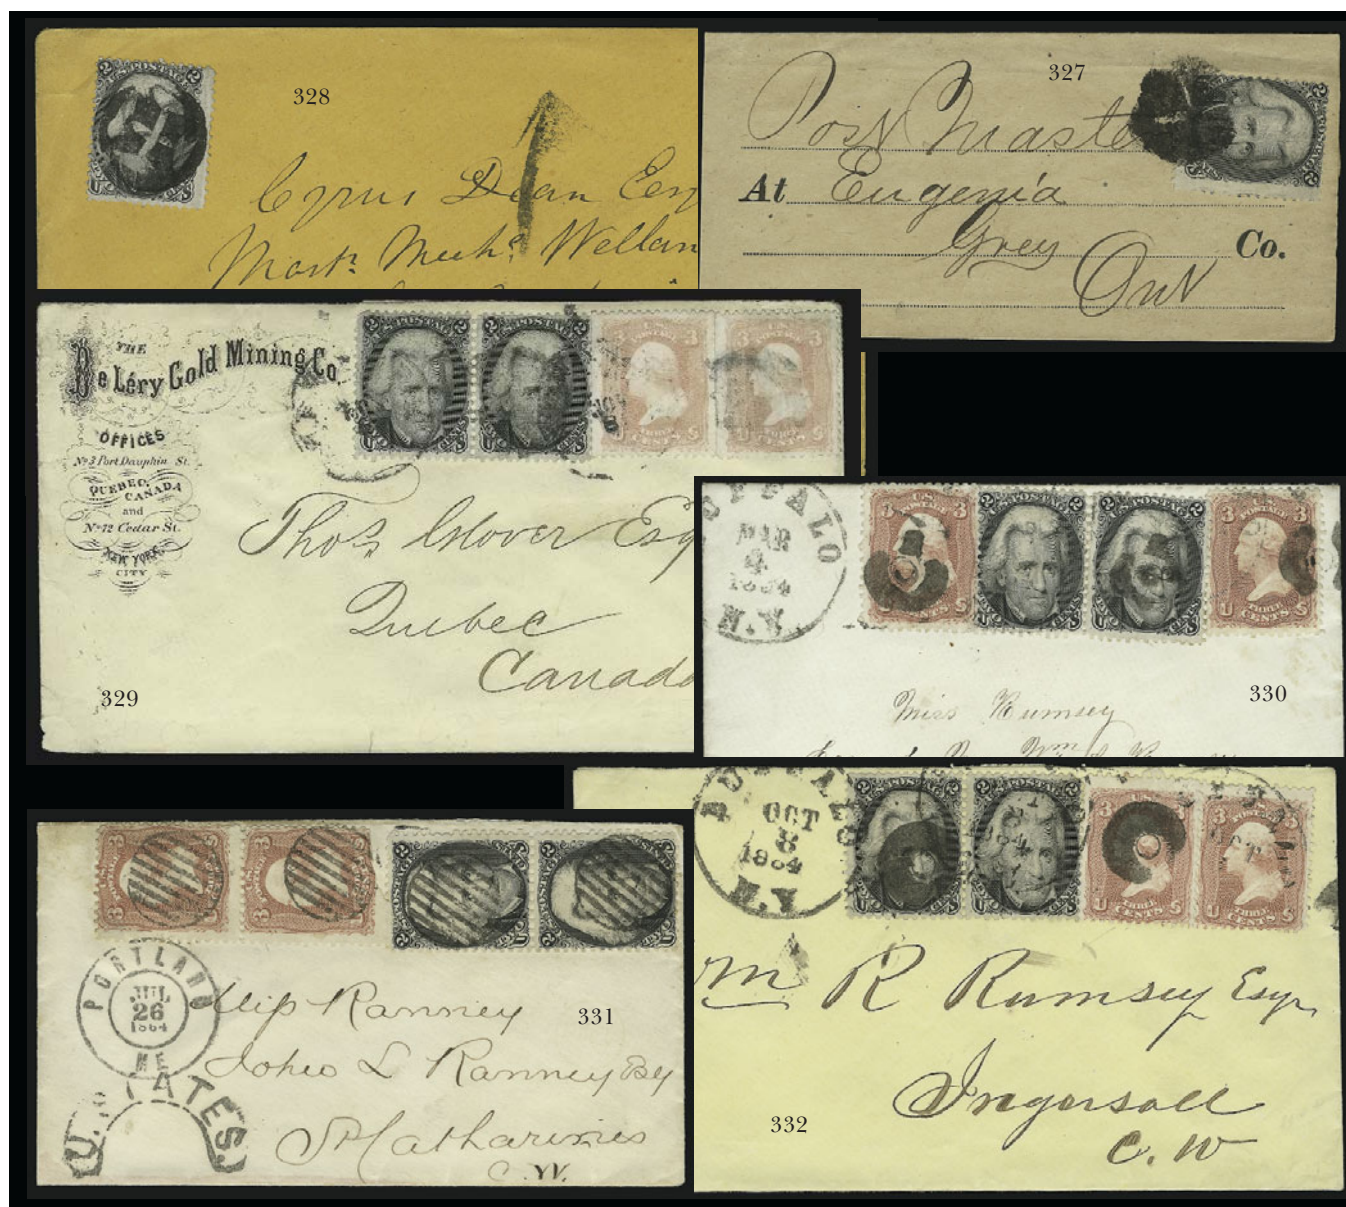 328
Cyrus Dean Esq
Mastr Mechc Wellan
327
Post Maste
At Eugenia
Grey Co.
Ont
THE
De Léry Gold Mining Co
OFFICES
No 3 Port Dauphin St.
QUEBEC,
CANADA
and
No 72 Cedar St.
NEW YORK
CITY
2 POSTAG 2
2 POSTAG 2
3 3
U THREE S
CENTS
Thos Glover Esq
Quebec
Canada
329
BUFFALO
MAR
4
1864
N.Y.
U.S.
POSTAGE
3
U THREE S
CENTS
Miss Rumsey
330
PORTLAND
JUL
26
1864
ME
U. STATES.
Miss Ranney
John L Ranney Esq
St Catharines
C.W.
331
BUFFALO
OCT
8
1864
N.Y.
3
U THREE S
CENTS
Wm R Rumsey Esqr
Ingersoll
C. W
332